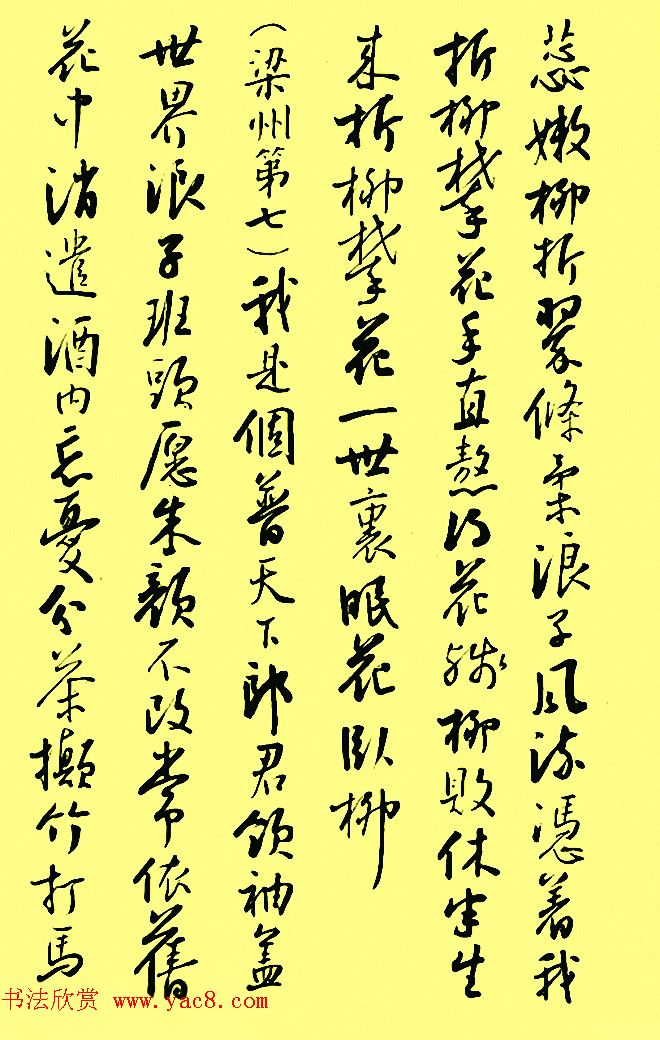 蕊嫩柳折翠條柔浪子風流憑著我
折柳攀花手直熬得花殘柳敗休半生
來折柳攀花一世裏眠花臥柳
（梁州第七）我是個普天下郎君領袖蓋
世界浪子班頭愿朱顏不改常依舊
花中消遣酒内忘憂分茶攧竹打馬
书法欣赏 www.yac8.com